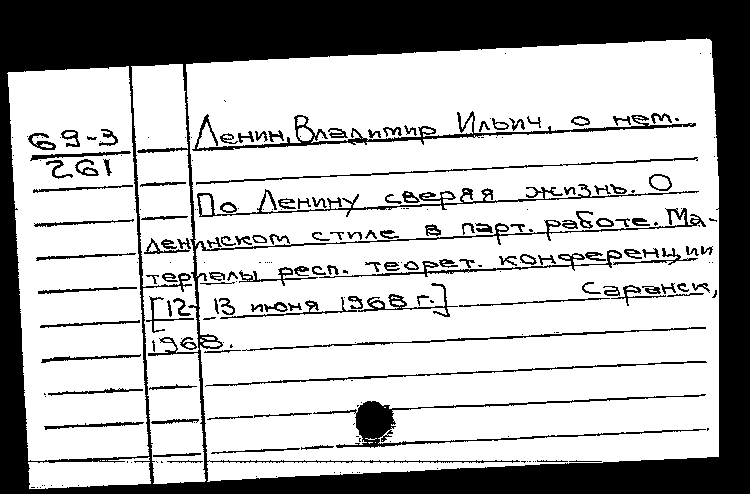 69-3
261
Ленин, Владимир Ильич, о нем.
По Ленину сверяя жизнь. О
ленинском стиле в парт. работе. Ма-
териалы респ. теорет. конференции
[12-13 июня 1968 г.] Саранск,
1968.